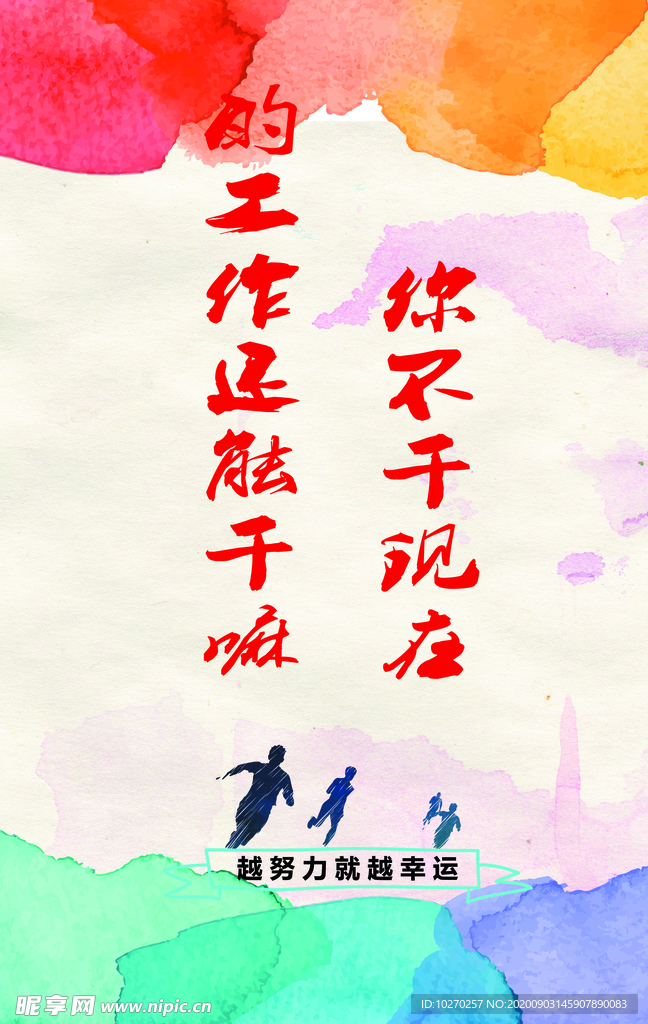 你不干现在
的工作还能干嘛
越努力就越幸运
昵享网 www.nipic.cn
ID:10270257 NO:20200903145907890083